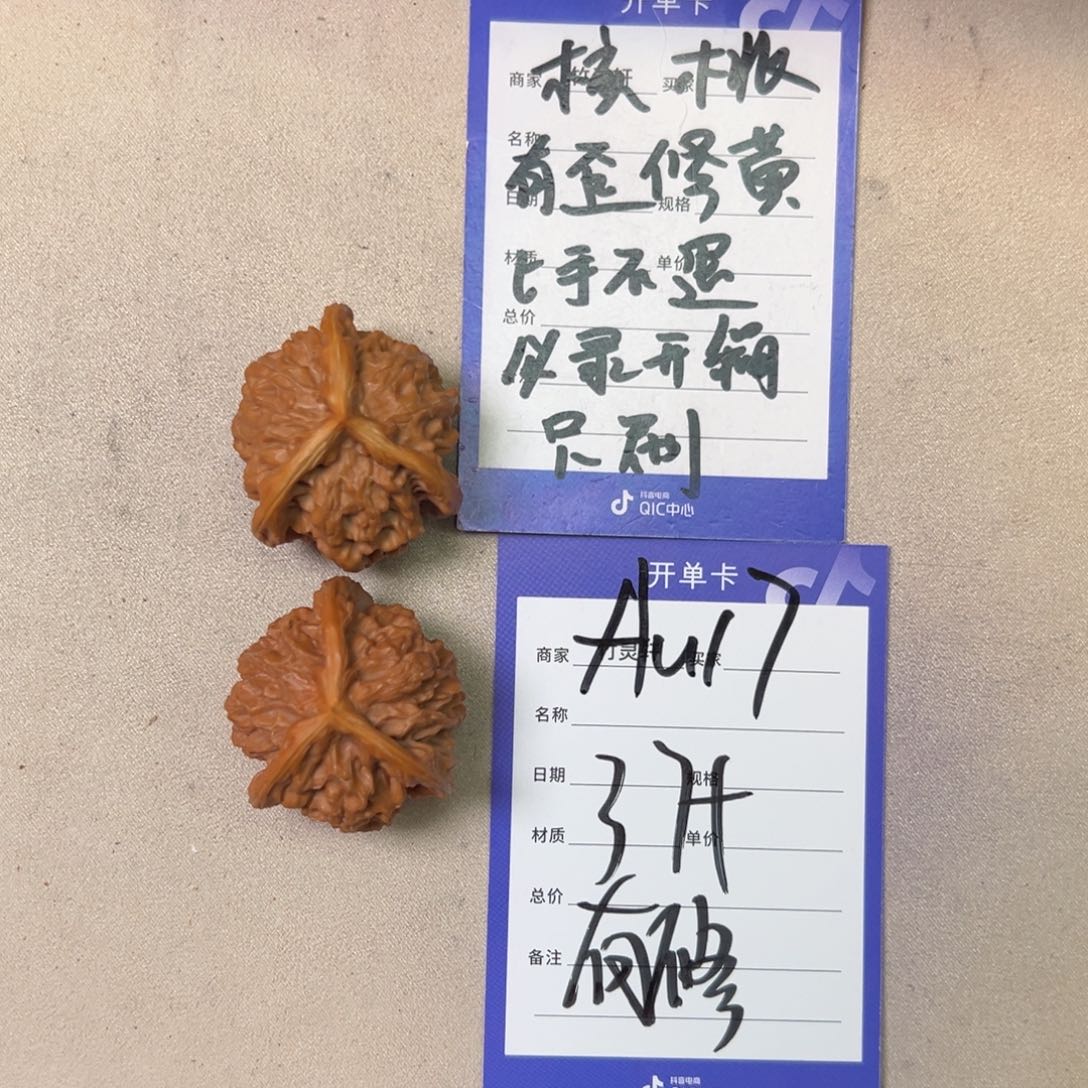 开单卡
商家 买家
核桃
名称
有歪修黄
日期 规格
材质 单价
上手不退
总价
必录开箱
只刷
抖音电商
QIC中心
开单卡
Au17
商家 竹灵轩 买家
名称
日期 规格
3H
材质 单价
总价
有修
备注
抖音电商